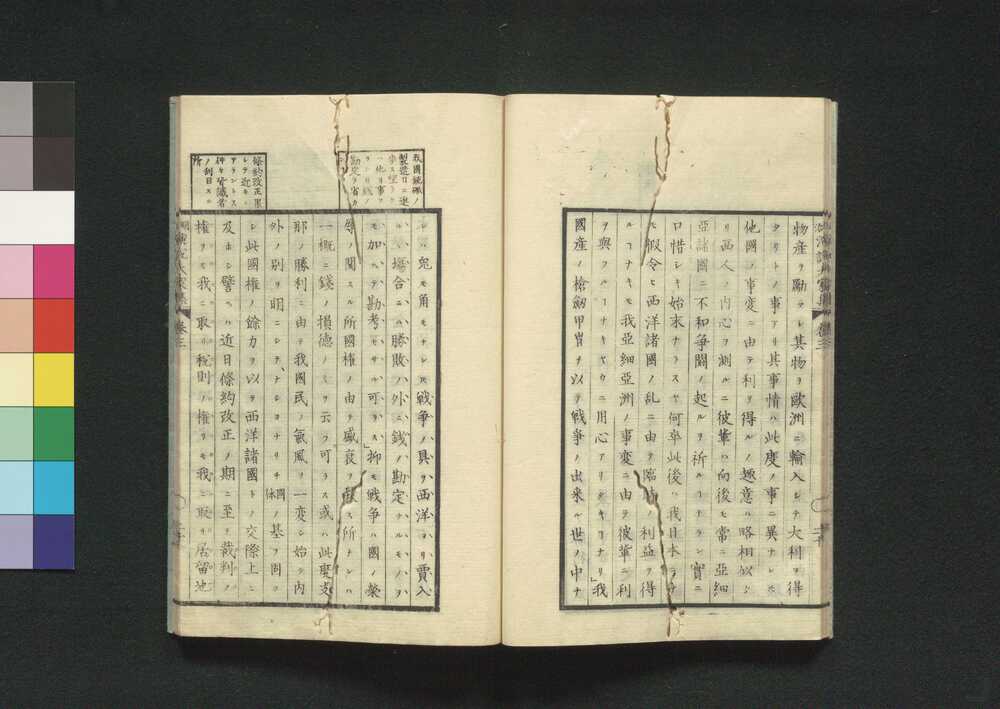 物産ヲ勵テレ其物ヲ歐洲ニ輸入シテ大利ヲ得
タリトノ事アリ其事情ハ此度ノ事ニ異ナレトモ
他國ノ事変ニ由テ利ヲ得ルノ趣意ハ略相似タ
リ西人ノ内心ヲ測ルニ彼輩ハ向後モ常ニ亞細
亞諸國ニ不和争闘ノ起ルヲ祈ルーナラン實ニ
口惜シキ始末ナラスヤ何卒此後ハ我日本ニテ
モ假令ヒ西洋諸國ノ乱ニ由テ臨時ノ利益ヲ得
ルーナキモ我亞細亞洲ノ事変ニ由テ彼輩ニ利
ヲ與フルーナキヤウニ用心アリタキーナリ」我
國産ノ槍劔甲冑ヲ以テ戦争ノ出来ル世ノ中
ナレハ兎モ角モナレトモ戦争ノ具ヲ西洋ヨリ買入
ルヽ塲合ニハ勝敗ノ外ニ銭ノ勘定ナルモノヲ
モ加ヘテ勘考セサル可ラス」抑モ戦争ハ國ノ榮
辱ノ関スル所國権ノ由テ盛衰ヲ致ス所ナレハ
一概ニ錢ノ損徳ノミヲ云フ可ラス或ハ此度支
那ノ勝利ニ由テ我國民ノ氣風ヲ一変シ始テ内
外ノ別ヲ明ニシテ、ナショナリチ國体ノ基ヲ固
シ此國権ノ餘カヲ以テ西洋諸國トノ交際上ニ
及ホシ譬ヘハ近日條約改正ノ期ニ至テ裁判ノ
権ヲモ我ニ取リ税則ノ権ヲモ我ニ取リ居留地
我國銃砲ノ
製造日ニ進
勘定ヲ省カ
條約改正果
シテ近キニ
アラントス
神々皆識者
ノ刮目スル
所
卷三
卷三